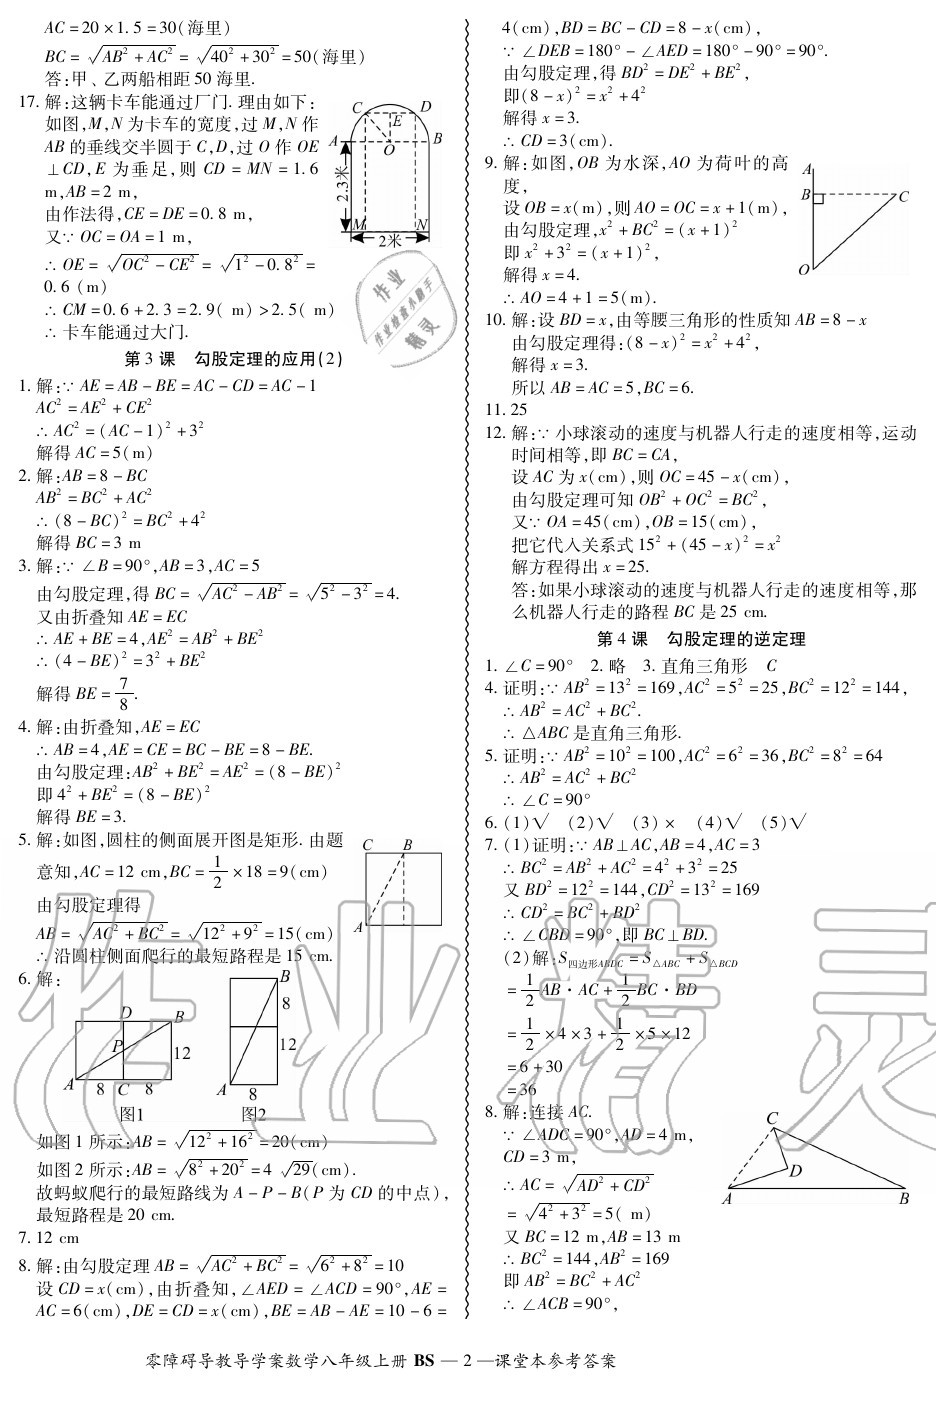 AC = 20 × 1.5 = 30(海里)
BC = √(AB² + AC²) = √(40² + 30²) = 50(海里)
答:甲、乙两船相距 50 海里.
17. 解:这辆卡车能通过厂门. 理由如下:
如图,M,N 为卡车的宽度,过 M,N 作
AB 的垂线交半圆于 C,D,过 O 作 OE
⊥CD,E 为垂足,则 CD = MN = 1.6
m,AB = 2 m,
由作法得,CE = DE = 0.8 m,
又∵ OC = OA = 1 m,
∴ OE = √(OC² − CE²) = √(1² − 0.8²) =
0.6 (m)
∴ CM = 0.6 + 2.3 = 2.9( m) > 2.5( m)
∴ 卡车能通过大门.
C D
E
A O B
2.3米
M N
2米
第 3 课 勾股定理的应用(2)
1. 解:∵ AE = AB − BE = AC − CD = AC − 1
AC² = AE² + CE²
∴ AC² = (AC − 1)² + 3²
解得 AC = 5(m)
2. 解:AB = 8 − BC
AB² = BC² + AC²
∴ (8 − BC)² = BC² + 4²
解得 BC = 3 m
3. 解:∵ ∠B = 90°,AB = 3,AC = 5
由勾股定理,得 BC = √(AC² − AB²) = √(5² − 3²) = 4.
又由折叠知 AE = EC
∴ AE + BE = 4,AE² = AB² + BE²
∴ (4 − BE)² = 3² + BE²
解得 BE = 7/8.
4. 解:由折叠知,AE = EC
∴ AB = 4,AE = CE = BC − BE = 8 − BE.
由勾股定理:AB² + BE² = AE² = (8 − BE)²
即 4² + BE² = (8 − BE)²
解得 BE = 3.
5. 解:如图,圆柱的侧面展开图是矩形. 由题
意知,AC = 12 cm,BC = 1/2 × 18 = 9(cm)
由勾股定理得
AB = √(AC² + BC²) = √(12² + 9²) = 15(cm)
∴ 沿圆柱侧面爬行的最短路程是 15 cm.
C B
A
6. 解:
D B
P 12
A 8 C 8
图1
B
8
12
A 8
图2
如图 1 所示:AB = √(12² + 16²) = 20(cm)
如图 2 所示:AB = √(8² + 20²) = 4 √29(cm).
故蚂蚁爬行的最短路线为 A − P − B(P 为 CD 的中点),
最短路程是 20 cm.
7. 12 cm
8. 解:由勾股定理 AB = √(AC² + BC²) = √(6² + 8²) = 10
设 CD = x(cm),由折叠知,∠AED = ∠ACD = 90°,AE =
AC = 6(cm),DE = CD = x(cm),BE = AB − AE = 10 − 6 =
4(cm),BD = BC − CD = 8 − x(cm),
∵ ∠DEB = 180° − ∠AED = 180° − 90° = 90°.
由勾股定理,得 BD² = DE² + BE²,
即(8 − x)² = x² + 4²
解得 x = 3.
∴ CD = 3(cm).
9. 解:如图,OB 为水深,AO 为荷叶的高
度,
设 OB = x(m),则 AO = OC = x + 1(m),
由勾股定理,x² + BC² = (x + 1)²
即 x² + 3² = (x + 1)²,
解得 x = 4.
∴ AO = 4 + 1 = 5(m).
A
B C
O
10. 解:设 BD = x,由等腰三角形的性质知 AB = 8 − x
由勾股定理得:(8 − x)² = x² + 4²,
解得 x = 3.
所以 AB = AC = 5,BC = 6.
11. 25
12. 解:∵ 小球滚动的速度与机器人行走的速度相等,运动
时间相等,即 BC = CA,
设 AC 为 x(cm),则 OC = 45 − x(cm),
由勾股定理可知 OB² + OC² = BC²,
又∵ OA = 45(cm),OB = 15(cm),
把它代入关系式 15² + (45 − x)² = x²
解方程得出 x = 25.
答:如果小球滚动的速度与机器人行走的速度相等,那
么机器人行走的路程 BC 是 25 cm.
第 4 课 勾股定理的逆定理
1. ∠C = 90° 2. 略 3. 直角三角形 C
4. 证明:∵ AB² = 13² = 169,AC² = 5² = 25,BC² = 12² = 144,
∴ AB² = AC² + BC².
∴ △ABC 是直角三角形.
5. 证明:∵ AB² = 10² = 100,AC² = 6² = 36,BC² = 8² = 64
∴ AB² = AC² + BC²
∴ ∠C = 90°
6. (1)√ (2)√ (3) × (4)√ (5)√
7. (1)证明:∵ AB⊥AC,AB = 4,AC = 3
∴ BC² = AB² + AC² = 4² + 3² = 25
又 BD² = 12² = 144,CD² = 13² = 169
∴ CD² = BC² + BD²
∴ ∠CBD = 90°,即 BC⊥BD.
(2)解:S四边形ABDC = S△ABC + S△BCD
= 1/2 AB · AC + 1/2 BC · BD
= 1/2 × 4 × 3 + 1/2 × 5 × 12
= 6 + 30
= 36
8. 解:连接 AC.
∵ ∠ADC = 90°,AD = 4 m,
CD = 3 m,
∴ AC = √(AD² + CD²)
= √(4² + 3²) = 5( m)
又 BC = 12 m,AB = 13 m
∴ BC² = 144,AB² = 169
即 AB² = BC² + AC²
∴ ∠ACB = 90°,
C
D
A B
零障碍导教导学案数学八年级上册 BS — 2 —课堂本参考答案
作业精灵
作业
作业检查小助手
精灵